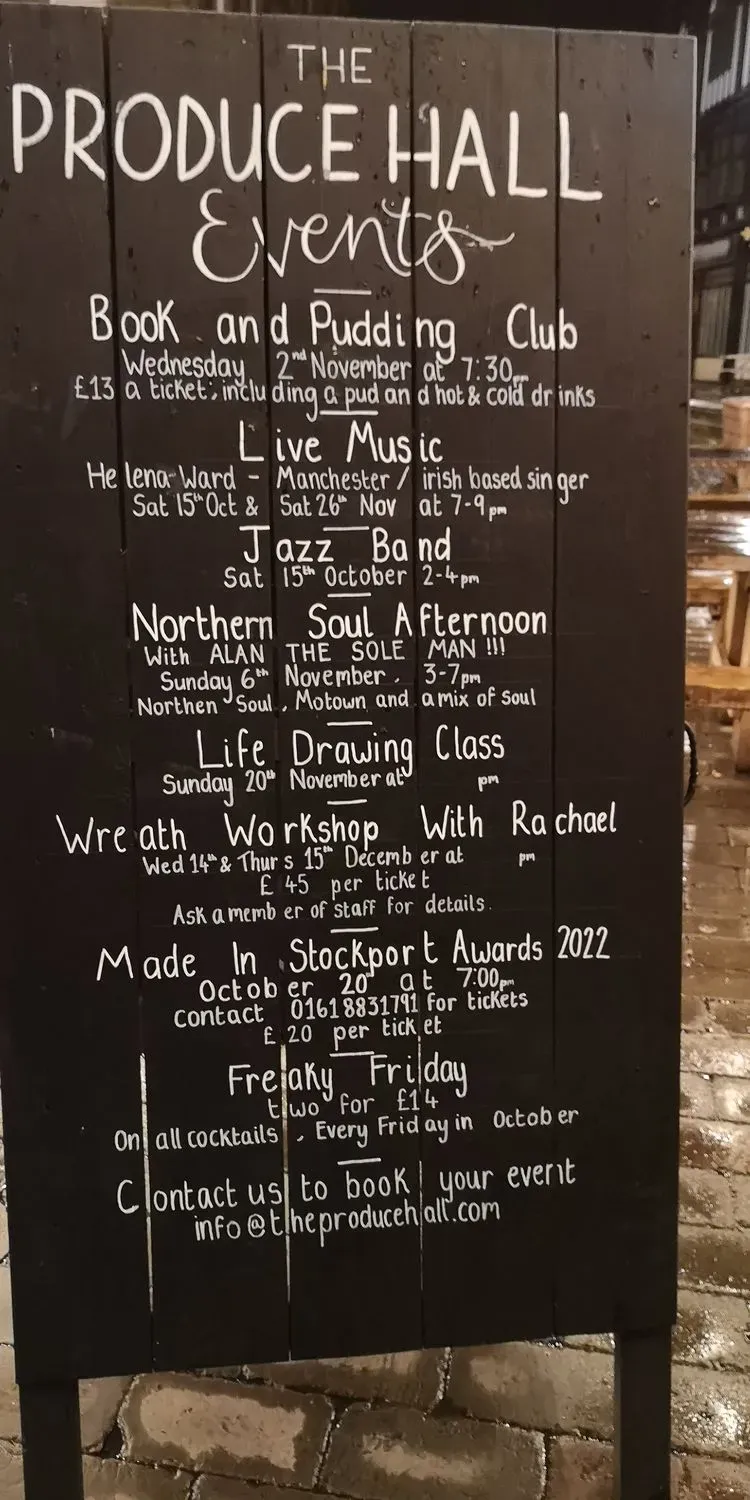 THE
PRODUCE HALL
Events
Book and Pudding Club
Wednesday 2nd November at 7:30pm
£13 a ticket, including a pud and hot & cold drinks
Live Music
Helena Ward - Manchester / irish based singer
Sat 15th Oct & Sat 26th Nov at 7-9pm
Jazz Band
Sat 15th October 2-4pm
Northern Soul Afternoon
With ALAN THE SOLE MAN !!!
Sunday 6th November, 3-7pm
Northen Soul, Motown and a mix of soul
Life Drawing Class
Sunday 20th November at pm
Wreath Workshop With Rachael
Wed 14th & Thurs 15th December at pm
£45 per ticket
Ask a member of staff for details.
Made In Stockport Awards 2022
October 20th at 7:00pm
contact 01618831791 for tickets
£20 per ticket
Freaky Friday
two for £14
On all cocktails, Every Friday in October
Contact us to book your event
info@theproducehall.com